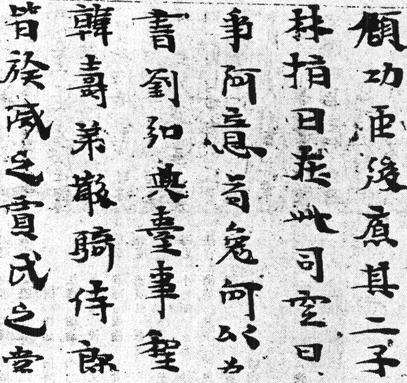 顧功臣後其二子
林指曰在此司空曰
事阿意苟免何以為
書劉弘典臺事
韓壽弟散騎侍郎
皆族滅之賈氏之